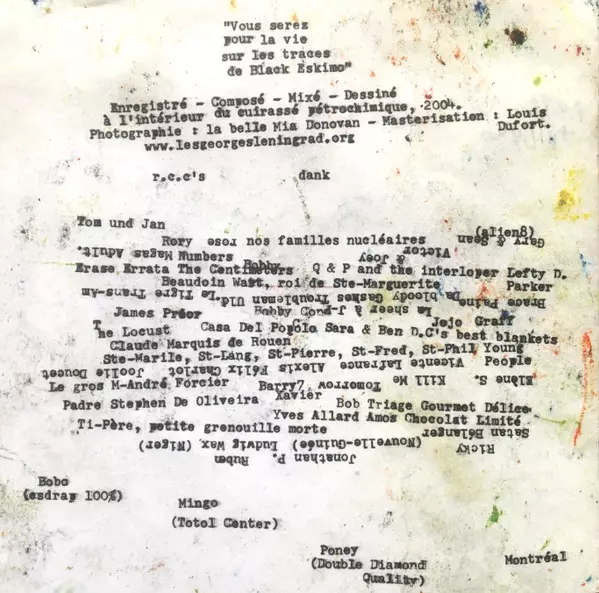 "Vous serez
pour la vie
sur les traces
de Black Eskimo"
Enregistré - Composé - Mixé - Dessiné
à l'intérieur du cuirassé pétrochimique, 2004.
Photographie : la belle Mia Donovan - Masterisation : Louis Dufort.
www.lesgeorgesleningrad.org
r.c.c's dank
Tom und Jan
Rory rose nos familles nucléaires Gary & Sean (alien8)
Numbers Magas Adult. Victor & Joey
Erase Errata The Centimeters Bobby Q & P and the interloper Lefty D. Parker
Beaudoin Wait, roi de Ste-Marguerite
Da bloody Gashes Troubleman Utd. Le Tigre Trans-Am
James Préor Bobby Le sheer à J- Jojo Graff
The Locust Casa Del Popolo Sara & Ben D.C's best blankets
Claude Marquis de Rouen
Ste-Marile, St-Lang, St-Pierre, St-Fred, St-Phil Young People
Vicente Lafrance Alexis Félix Charlot Joelle Doucet
Elène S. Kill Me Tomorrow
Le gros M-André Forcier Barry7 Xavier
Padre Stephen De Oliveira Bob Triage Gourmet Délice
Yves Allard Amos Chocolat Limité
Ti-Père, petite grenouille morte Satan Bélanger
Ricky (Nouvelle-Guinée) Ludwig Wax (Niger)
Jonathan P. Ruben
Bobo
(esdrap 100%)
Mingo
(Totol Center)
Poney
(Double Diamond
Quality)
Montréal